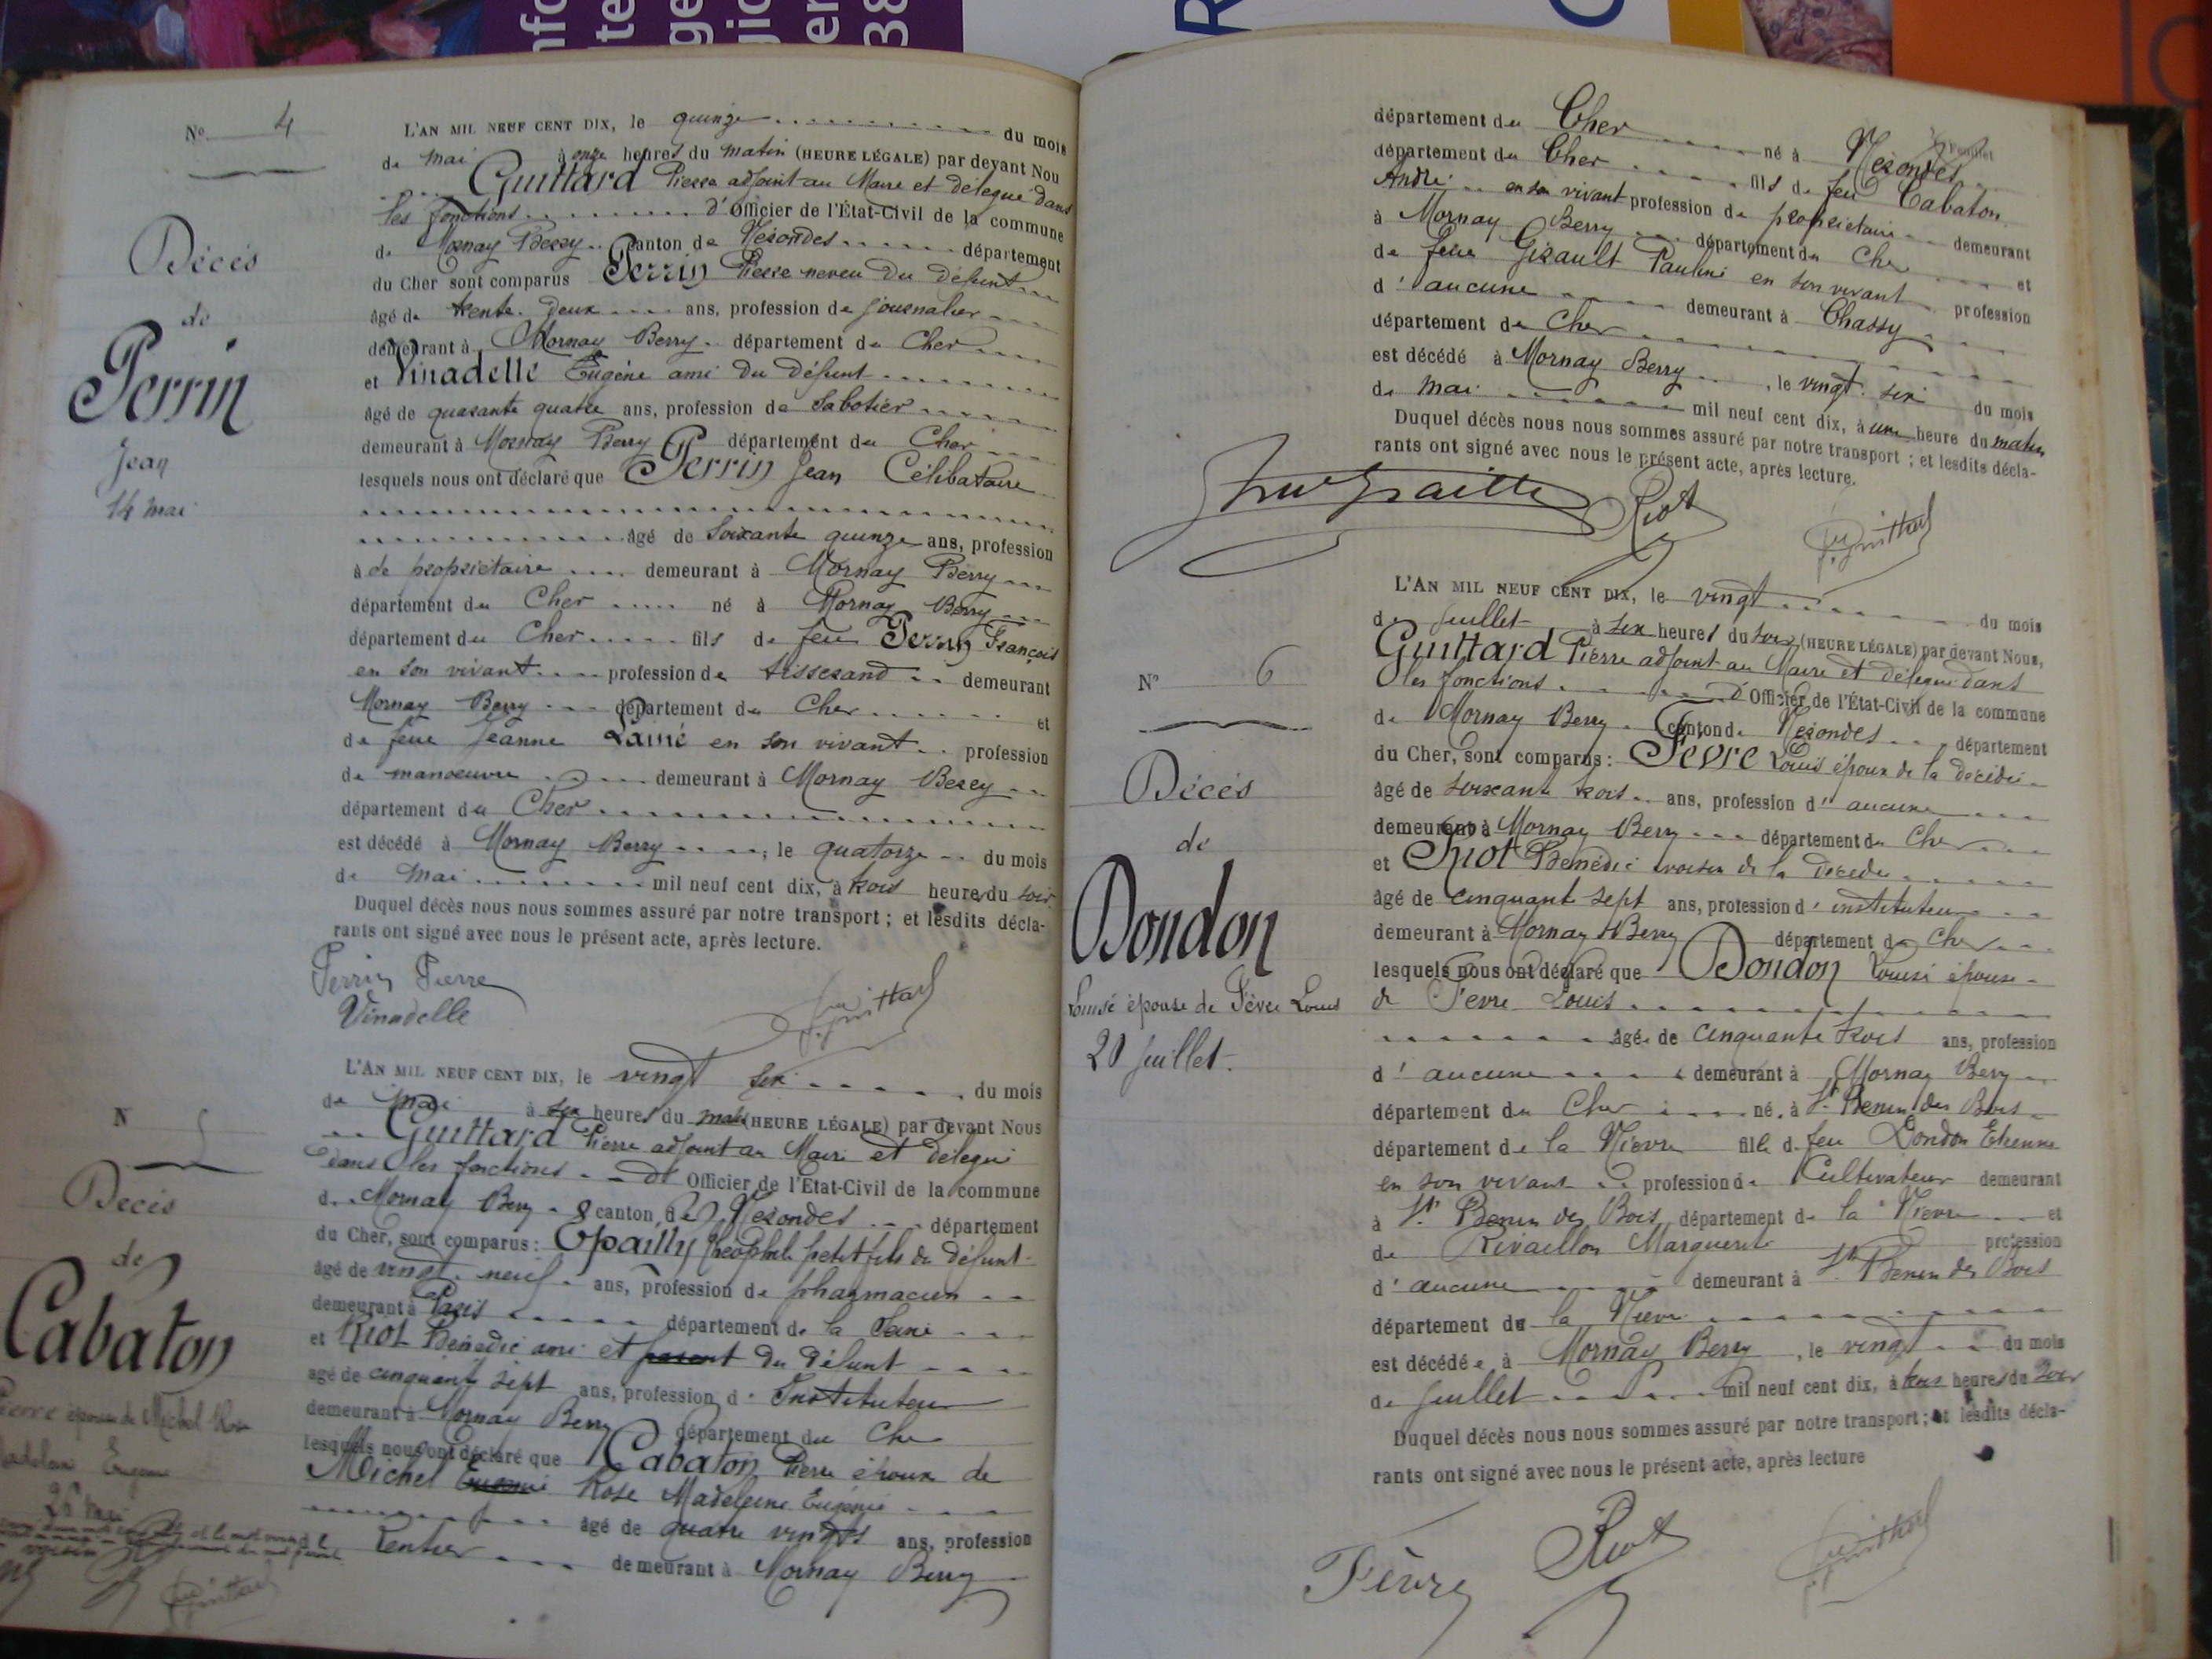 N° 4
Décès
de
Perrin
Jean
14 mai
L'AN MIL NEUF CENT DIX, le quinze du mois
de mai à onze heures du matin (HEURE LÉGALE) par devant Nou
Guittard Pierre adjoint au Maire et délégué dans
les fonctions d'Officier de l'État-Civil de la commune
de Mornay Berry canton de Nérondes département
du Cher sont comparus Perrin Pierre neveu du défunt
âgé de trente deux ans, profession de journalier
demeurant à Mornay Berry département du Cher
et Vinadelle Eugène ami du défunt
âgé de quarante quatre ans, profession de Sabotier
demeurant à Mornay Berry département du Cher
lesquels nous ont déclaré que Perrin Jean Célibataire
âgé de soixante quinze ans, profession
de propriétaire demeurant à Mornay Berry
département du Cher né à Mornay Berry
département du Cher fils de feu Perrin François
en son vivant profession de tisserand demeurant
Mornay Berry département du Cher et
de feue Jeanne Lainé en son vivant profession
de manoeuvre demeurant à Mornay Berry
département du Cher
est décédé à Mornay Berry, le quatorze du mois
de mai mil neuf cent dix, à trois heures du soir
Duquel décès nous nous sommes assuré par notre transport ; et lesdits décla-
rants ont signé avec nous le présent acte, après lecture.
Perrin Pierre
Vinadelle
Guittard
N 5
Décès
de
Cabaton
Pierre époux de Michel Rose
Madeleine Eugénie
26 mai
L'AN MIL NEUF CENT DIX, le vingt six du mois
de mai à six heures du matin (HEURE LÉGALE) par devant Nous
Guittard Pierre adjoint au Maire et délégué
dans les fonctions d'Officier de l'État-Civil de la commune
de Mornay Berry canton de Nérondes département
du Cher, sont comparus : Epailly Théophile petit fils du défunt
âgé de vingt neuf ans, profession de pharmacien
demeurant à Paris département de la Seine
et Riot Bénédic ami et parent du défunt
âgé de cinquante sept ans, profession d'Instituteur
demeurant à Mornay Berry département du Cher
lesquels nous ont déclaré que Cabaton Pierre époux de
Michel Eugénie Rose Madeleine Eugénie
âgé de quatre vingts ans, profession
Rentier demeurant à Mornay Berry
Guittard
Feuillet
département du Cher né à Nérondes
département du Cher fils de feu Cabaton
André en son vivant profession de propriétaire demeurant
à Mornay Berry département du Cher et
de feue Girault Pauline en son vivant profession
d'aucune demeurant à Chassy
département du Cher
est décédé à Mornay Berry, le vingt six du mois
de mai mil neuf cent dix, à une heure du matin
Duquel décès nous nous sommes assuré par notre transport ; et lesdits décla-
rants ont signé avec nous le présent acte, après lecture.
Riot
Guittard
N° 6
Décès
de
Dondon
Louise épouse de Fèvre Louis
20 juillet
L'AN MIL NEUF CENT DIX, le vingt du mois
de juillet à six heures du soir (HEURE LÉGALE) par devant Nous,
Guittard Pierre adjoint au Maire et délégué dans
les fonctions d'Officier de l'État-Civil de la commune
de Mornay Berry canton de Nérondes département
du Cher, sont comparus : Fèvre Louis époux de la décédée
âgé de soixante trois ans, profession d'aucune
demeurant à Mornay Berry département du Cher
et Riot Bénédic voisin de la décédée
âgé de cinquante sept ans, profession d'instituteur
demeurant à Mornay Berry département du Cher
lesquels nous ont déclaré que Dondon Louise épouse
de Fèvre Louis
âgée de cinquante trois ans, profession
d'aucune demeurant à Mornay Berry
département du Cher née à St Benin des Bois
département de la Nièvre fille de feu Dondon Etienne
en son vivant profession de Cultivateur demeurant
à St Benin des Bois département de la Nièvre et
de Rivaillon Marguerite profession
d'aucune demeurant à St Benin des Bois
département de la Nièvre
est décédée à Mornay Berry, le vingt du mois
de juillet mil neuf cent dix, à trois heures du soir
Duquel décès nous nous sommes assuré par notre transport ; et lesdits décla-
rants ont signé avec nous le présent acte, après lecture
Fèvre
Riot
Guittard